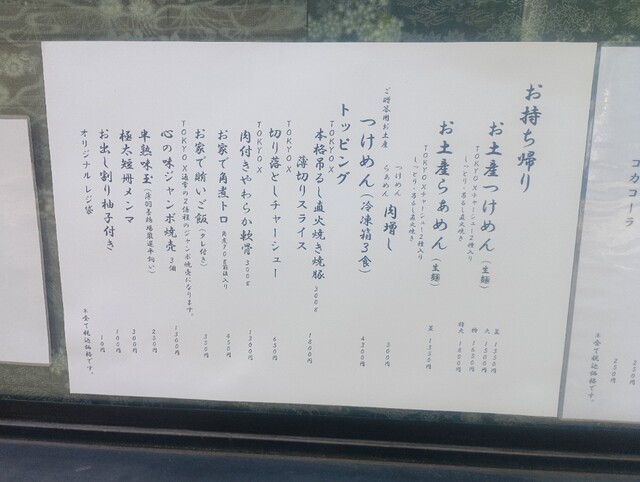 お持ち帰り
お土産つけめん（生麺）
TOKYO Xチャーシュー2種入り
しっとり・吊るし直火焼き
並 1350円
大 1500円
特 1650円
特大 1800円
お土産らぁめん（生麺）
TOKYO Xチャーシュー2種入り
しっとり・吊るし直火焼き
並 1350円
つけめん
らぁめん
肉増し
500円
ご贈答用お土産
つけめん（冷凍箱3食）
4300円
トッピング
TOKYO X
本格吊るし直火焼き焼豚 300g
1800円
薄切りスライス
TOKYO X
切り落としチャーシュー
650円
TOKYO X
肉付きやわらか軟骨 300g
1300円
お家で角煮トロ
450円
お家で賄いご飯（タレ付き）
350円
TOKYO X通常の2倍程のジャンボ焼売になります。
心の味ジャンボ焼売 3個
1300円
半熟味玉
250円
極太短冊メンマ
300円
お出し割り柚子付き
100円
オリジナル レジ袋
10円
※全て税込価格です。
コカコーラ
250円
250円
※全て税込価格です。